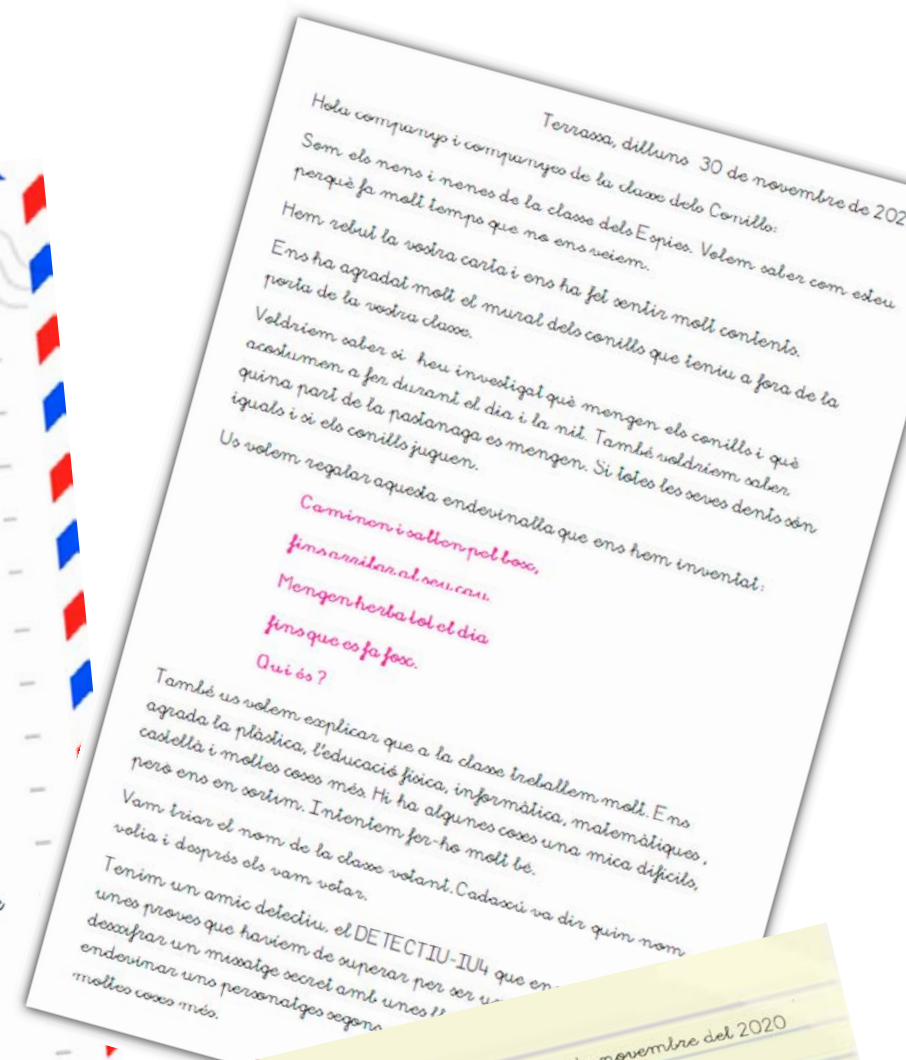 Terrassa, dilluns 30 de novembre de 202
Hola companys i companyes de la classe dels Conills:
Som els nens i nenes de la classe dels Espies. Volem saber com esteu
perquè fa molt temps que no ens veiem.
Hem rebut la vostra carta i ens ha fet sentir molt contents.
Ens ha agradat molt el mural dels conills que teniu a fora de la
porta de la vostra classe.
Voldriem saber si heu investigat què mengen els conills i què
acostumen a fer durant el dia i la nit. També voldriem saber
quina part de la pastanaga es mengen. Si totes les seves dents són
iguals i si els conills juguen.
Us volem regalar aquesta endevinalla que ens hem inventat:
Caminen i salten pel bosc,
fins arribar al seu cau.
Mengen herba tot el dia
fins que es fa fosc.
Qui és?
També us volem explicar que a la classe treballem molt. Ens
agrada la plàstica, l'educació física, informàtica, matemàtiques,
castellà i moltes coses més. Hi ha algunes coses una mica difícils,
però ens en sortim. Intentem fer-ho molt bé.
Vam triar el nom de la classe votant. Cadascú va dir quin nom
volia i després els vam votar.
Tenim un amic detectiu, el DETECTIU-IU4 que en
unes proves que haviem de superar per ser
desxifrar un missatge secret amb unes ll
endevinar uns personatges segons
moltes coses més.
novembre del 2020